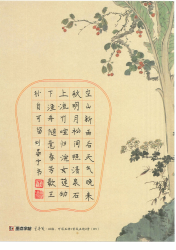 空山新雨后天气晚来
秋明月松间照清泉石
上流竹喧归浣女莲动
下渔舟随意春芳歇王
孙自可留
书
墨点字帖